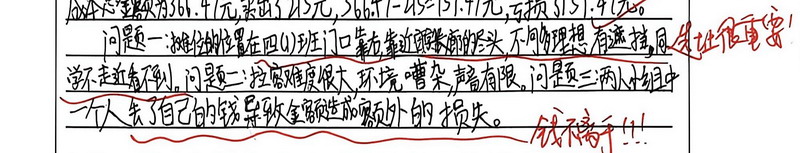 总金额为366.47元,卖出了215元,366.47-215=151.47元,亏损了151.47元。
问题一:摊位的位置在四(1)班门口靠右,靠近走廊的尽头,不同理想有遮挡,同 选址很重要!
学不走近看不到。问题二:拉客难度很大,环境嘈杂,声音有限。问题三:两人小组中
一个人丢了自己的钱导致金额造成额外的损失。
钱不离手!!!